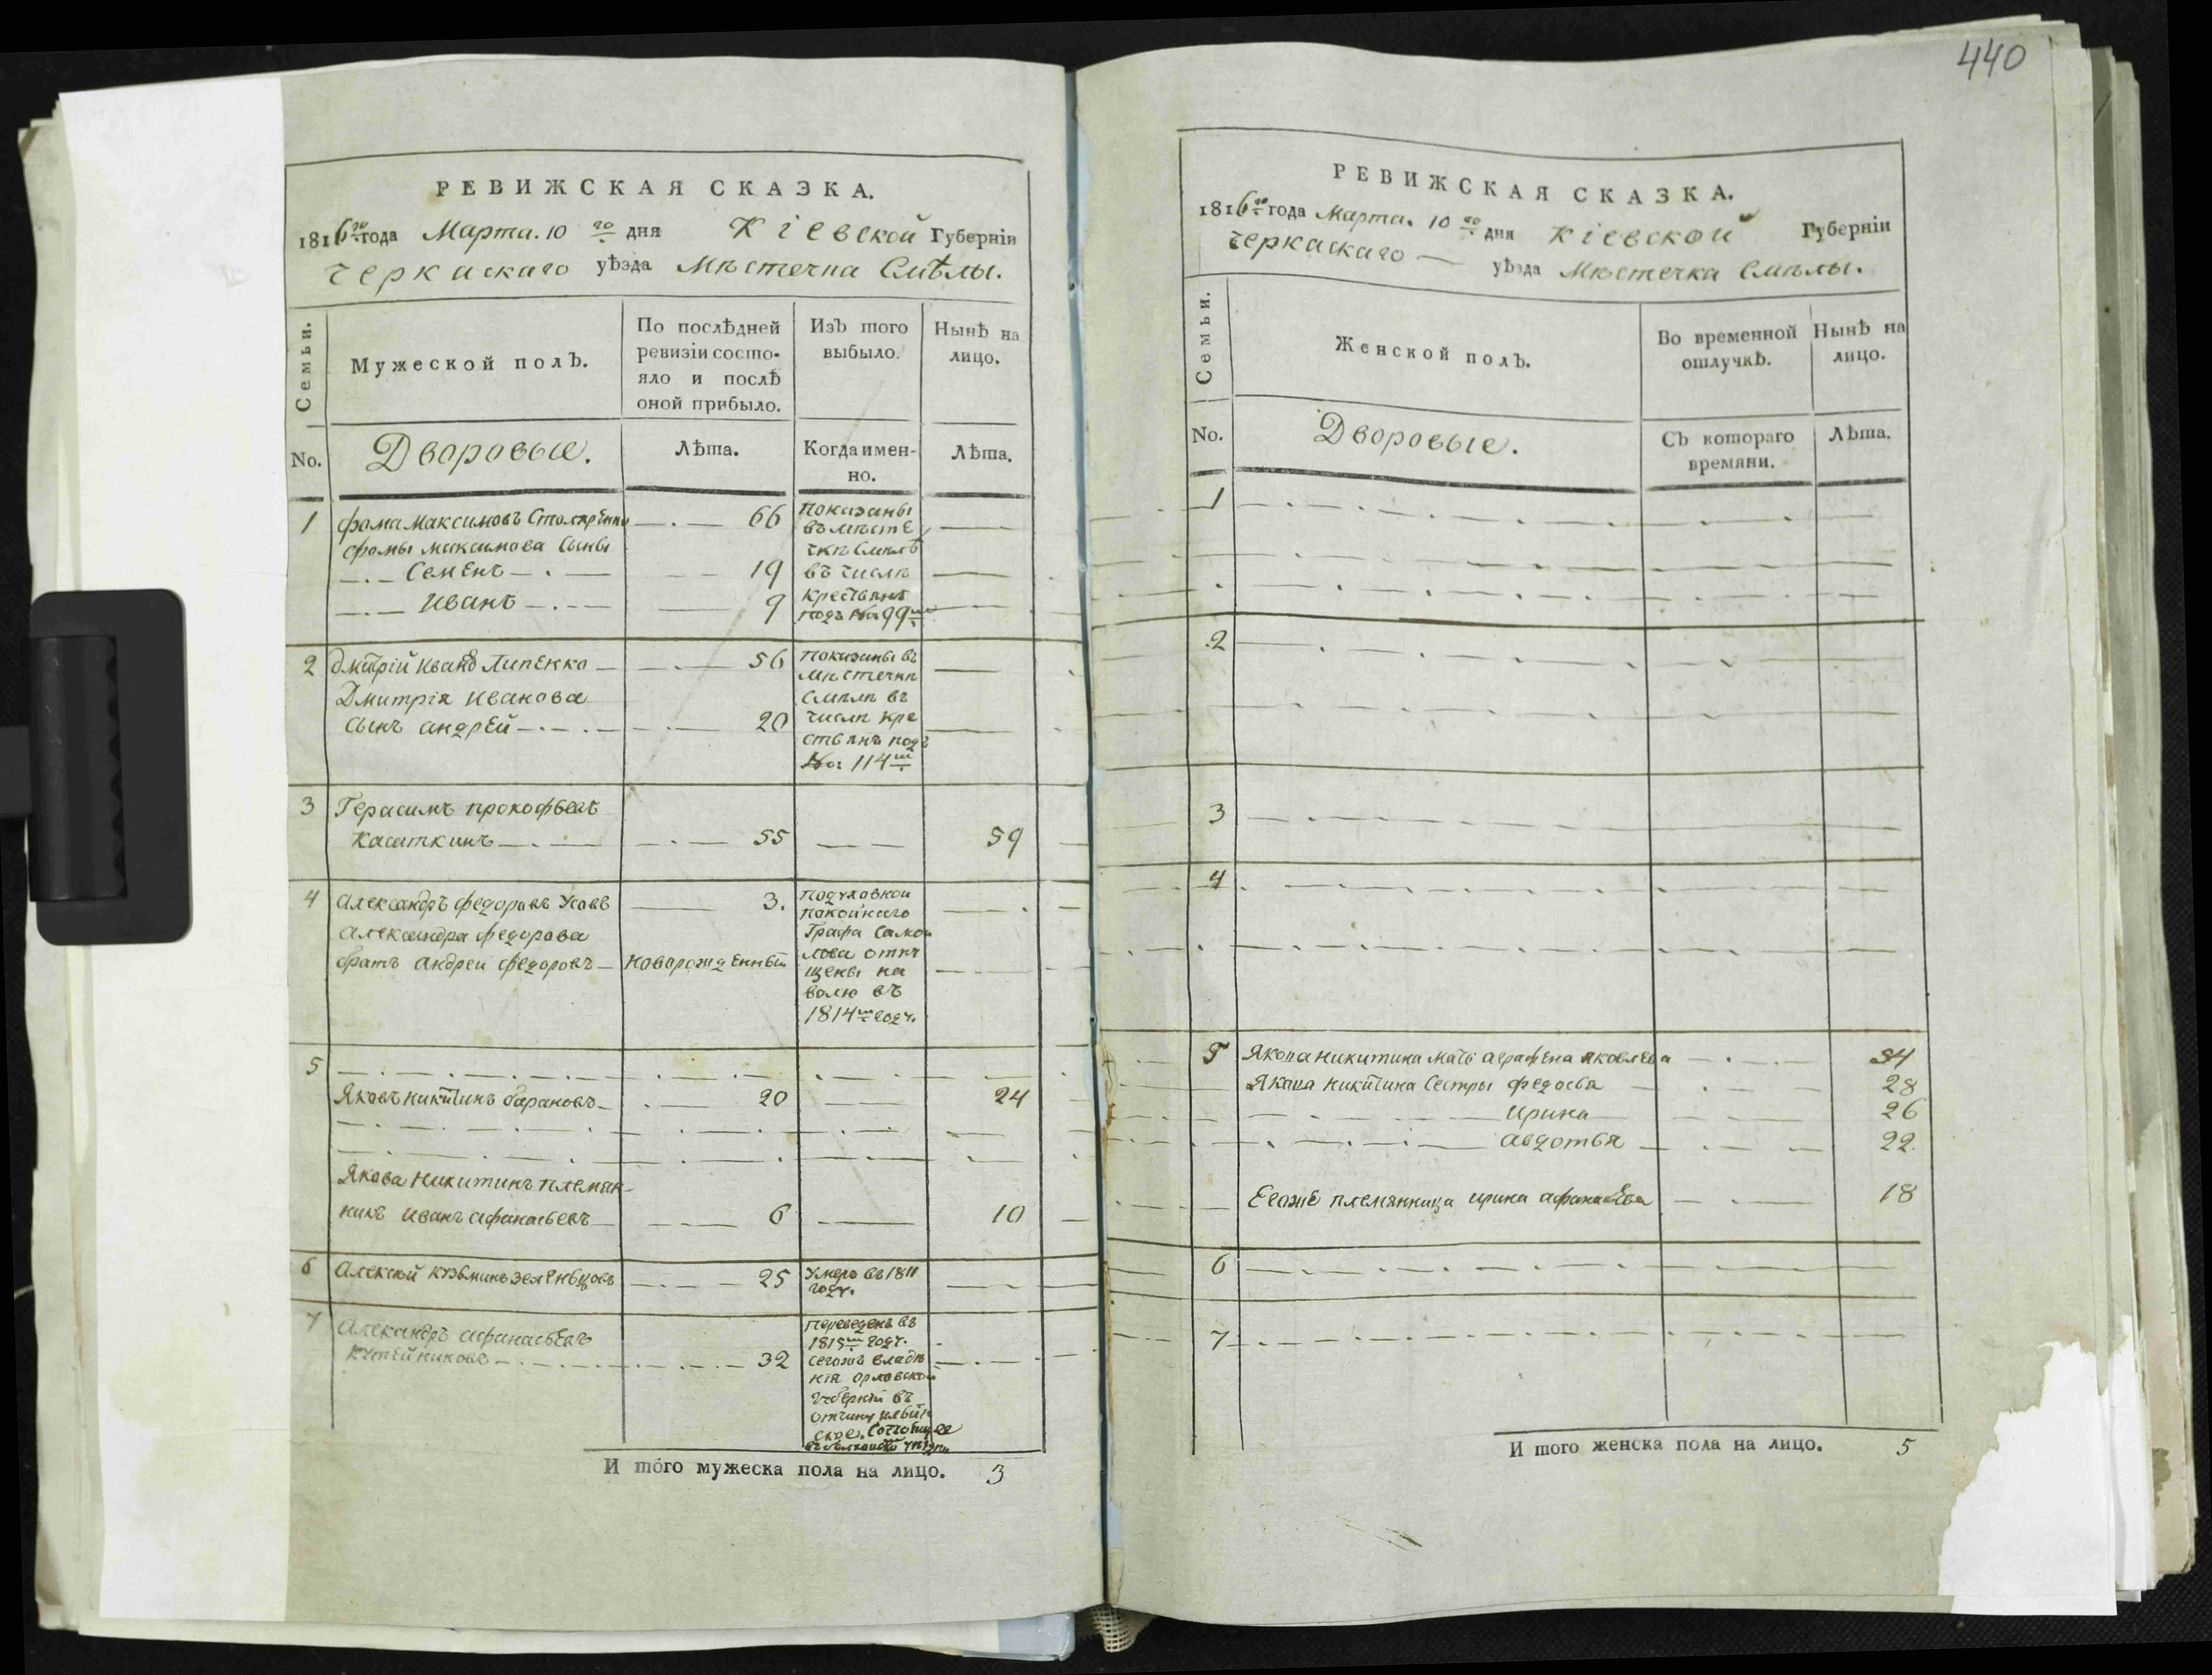 440
РЕВИЖСКАЯ СКАЗКА.
1816го года Марта. 10 го дня Кіевской Губерніи
Черкаскаго уѣзда Мѣстечка Смѣлы.
Семьи.
Мужеской полъ.
По послѣдней
ревизіи состо-
яло и послѣ
оной прибыло.
Изъ того
выбыло.
Нынѣ на
лицо.
No.
Дворовые.
Лѣта.
Когда имен-
но.
Лѣта.
1 фома Максимовъ 66 показаны
въ мѣсте
фомы максимова сыны
чкѣ Смѣлѣ
Семенъ 19 въ числѣ
Иванъ 9 крестьянъ
подъ No 99м
2 Дмитрій Иванов Липенко 56 показаны въ
мѣстечкѣ
Дмитрія Иванова
Смѣлѣ въ
сынъ андрей 20 числѣ кре
стьянъ подъ
No: 114м
3 Герасимъ прокофьевъ
Касаткинъ 55 59
4 Александръ федоровъ Усовъ 3. по
покойнаго
Александра федорова
Графа Самой
братъ андрей федоровъ новорожденный лова отпу
щены на
волю въ
1814м году.
5
Яковъ никитинъ барановъ 20 24
Якова Никитинъ племян
никъ Иванъ афанасьевъ 6 10
6 Алексѣй кузьминъ зеленцовъ 25 Умеръ въ 1811
году.
7 Александръ афанасьевъ
кутейниковъ 32
переведенъ въ
1815м году.
сегожъ владѣ
нія орловской
губерніи въ
отчину
И того мужеска пола на лицо. 3
РЕВИЖСКАЯ СКАЗКА.
1816го года Марта. 10 го дня Кіевской Губерніи
Черкаскаго уѣзда Мѣстечка Смѣлы.
Семьи.
Женской полъ.
Во временной
отлучкѣ.
Нынѣ на
лицо.
No.
Дворовые.
Съ котораго
времяни.
Лѣта.
1
2
3
4
5 Якова никитина мать аграфена яковлева 54
Якова никитина Сестры федосья 28
ирина 26
авдотья 22.
Егоже племянница ирина афанасьева 18
6
7
И того женска пола на лицо. 5